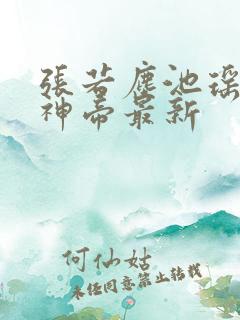 張若塵池瑤
神帝最新
何仙姑
未经同意禁止转载